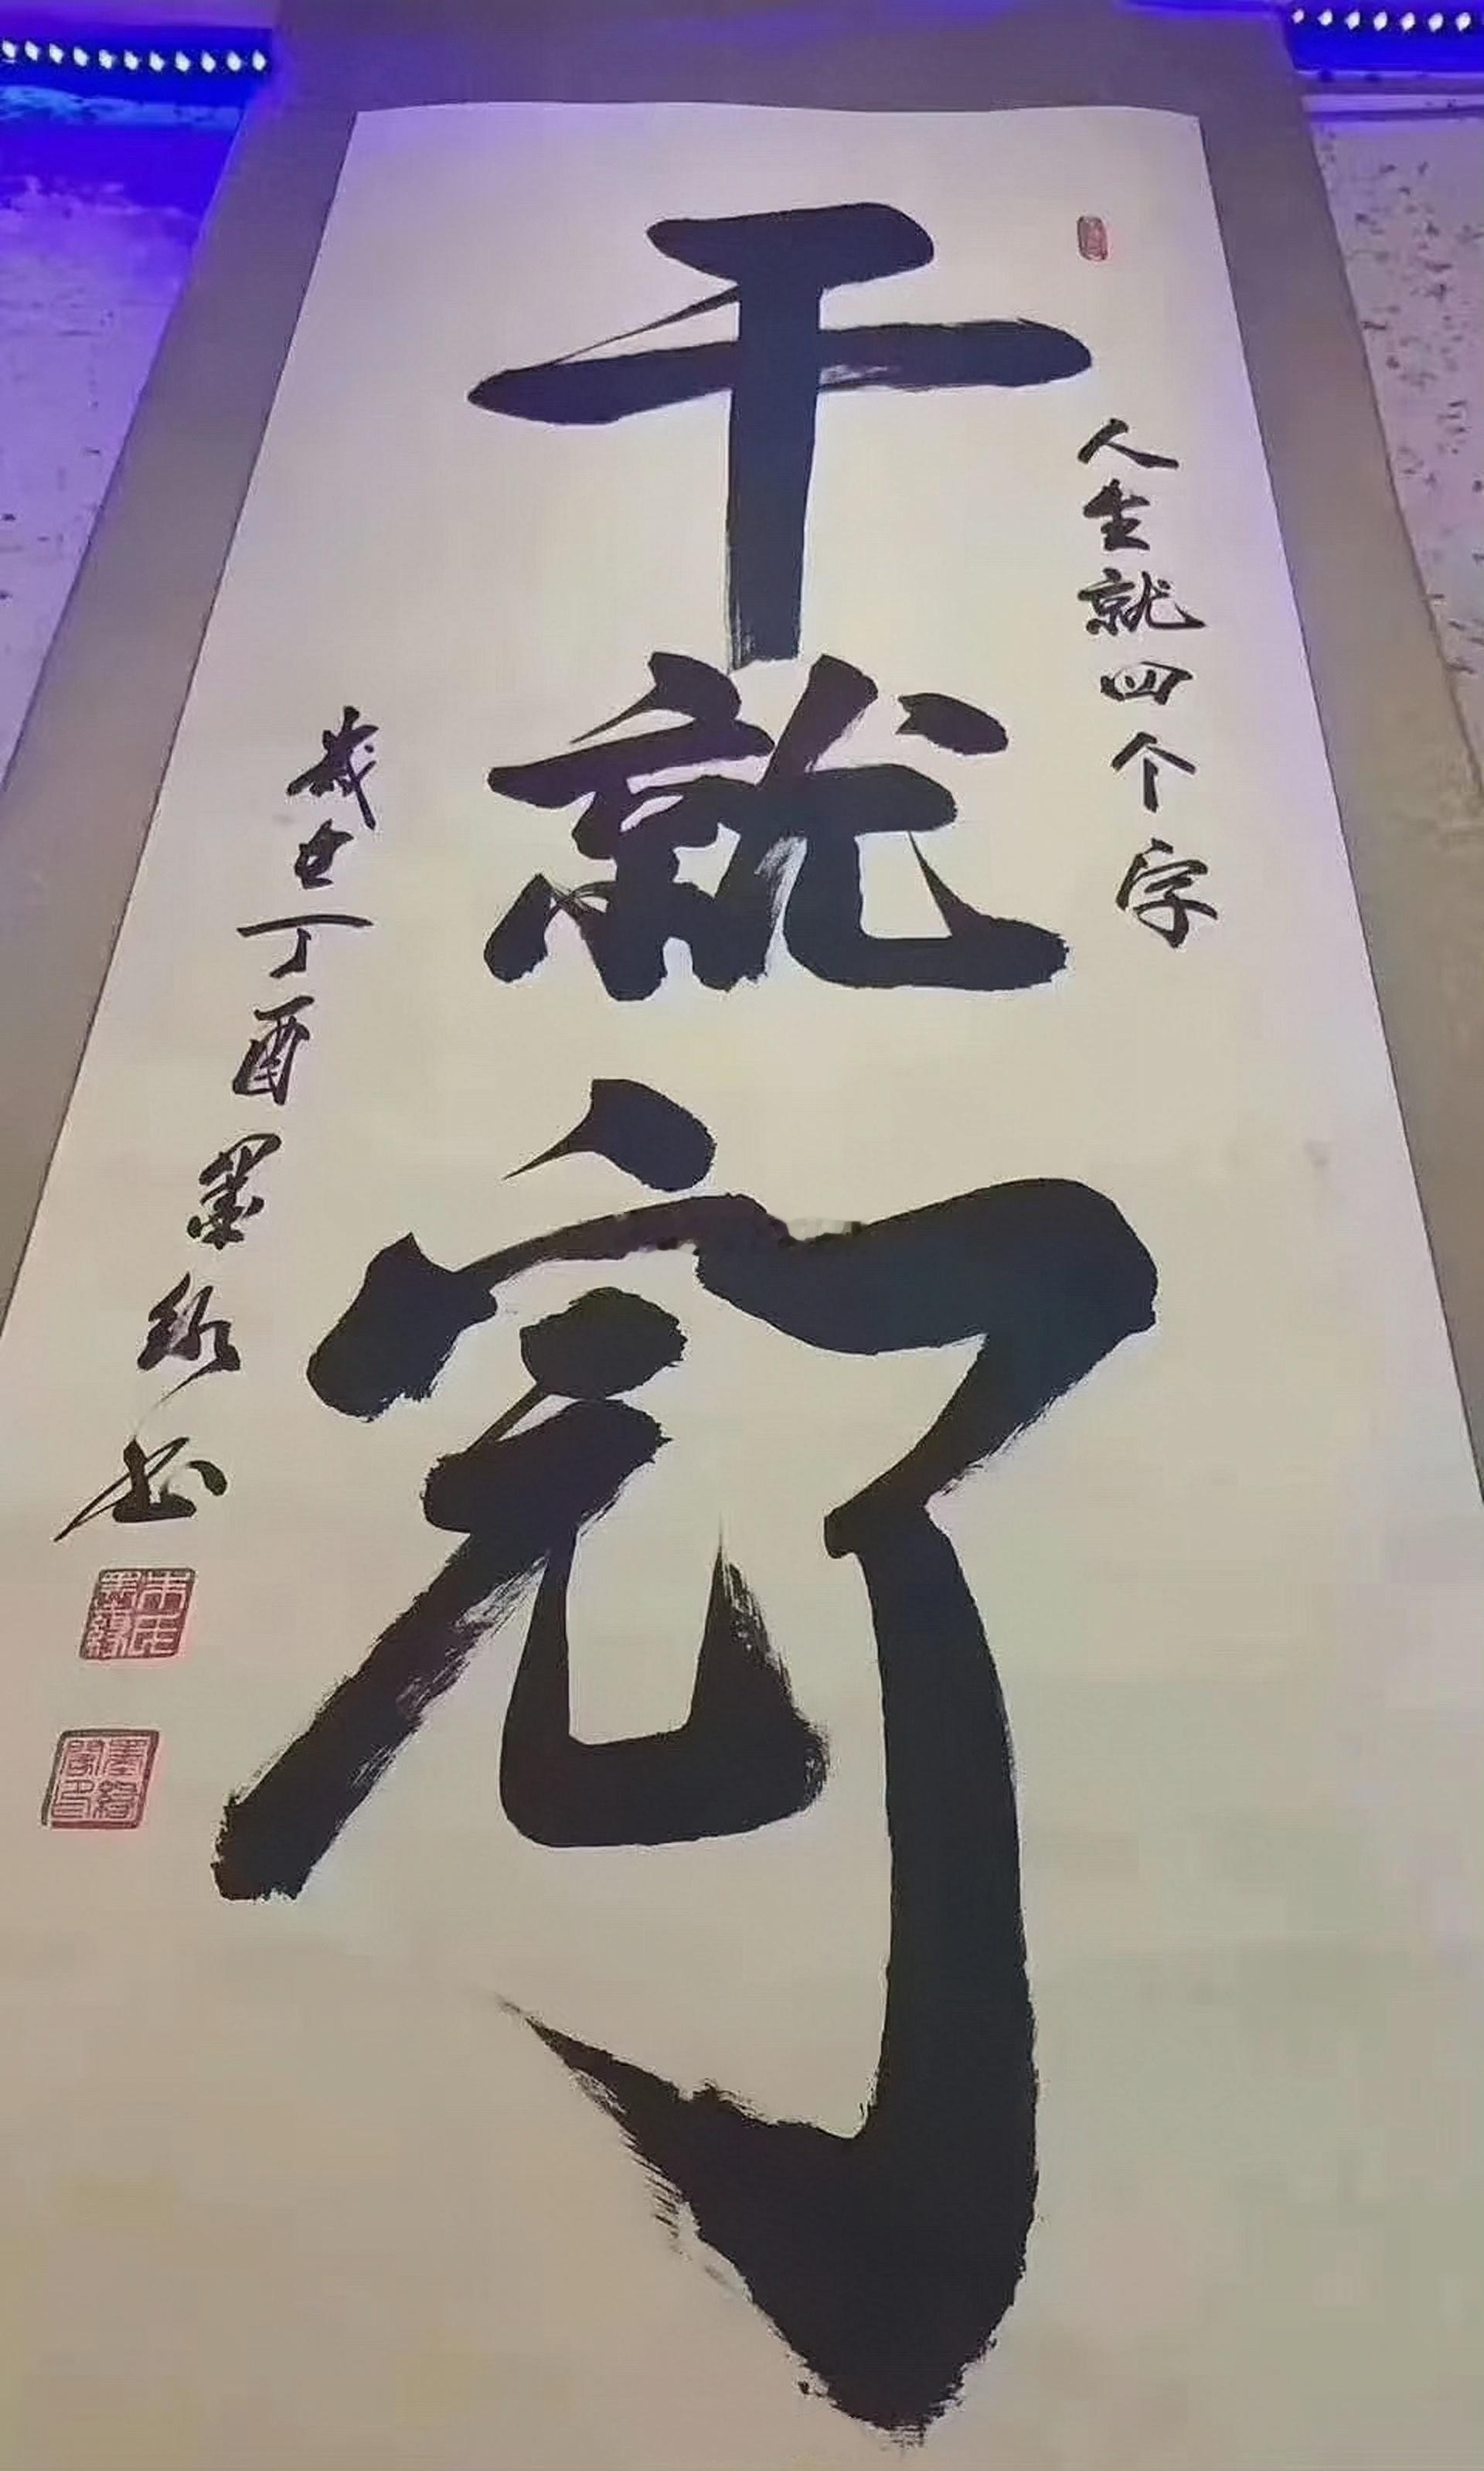 人生就四个字
干就完了
歲在丁酉墨缘书